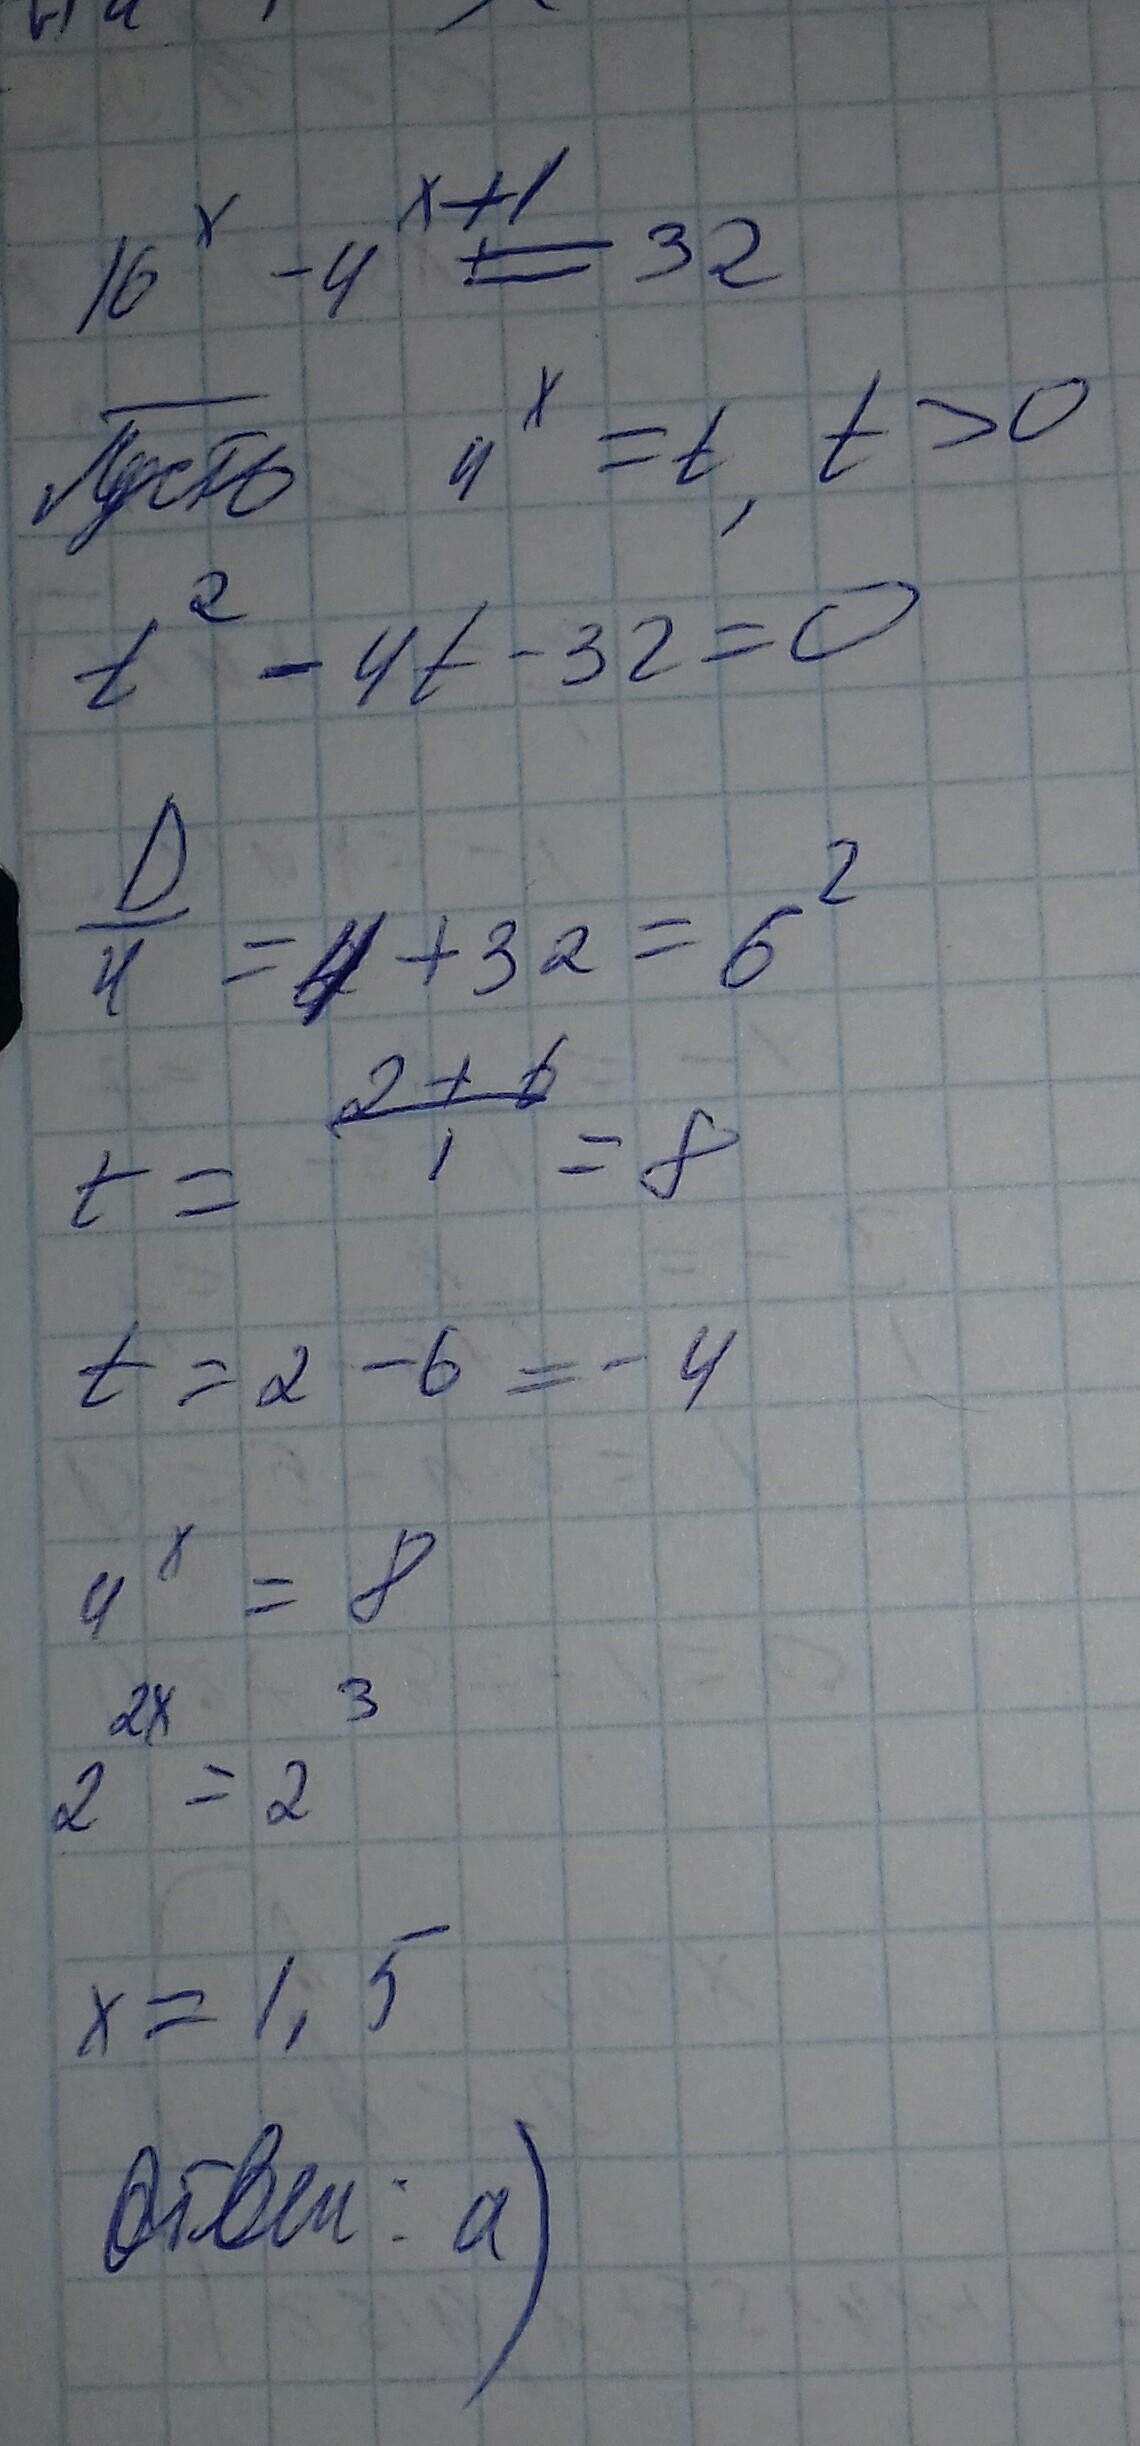 16^x - 4^{x+1} = 32
Пусть 4^x = t, t > 0
t^2 - 4t - 32 = 0
D/4 = 4 + 32 = 6^2
t = (2 + 6)/1 = 8
t = 2 - 6 = - 4
4^x = 8
2^{2x} = 2^3
x = 1,5
Ответ: а)